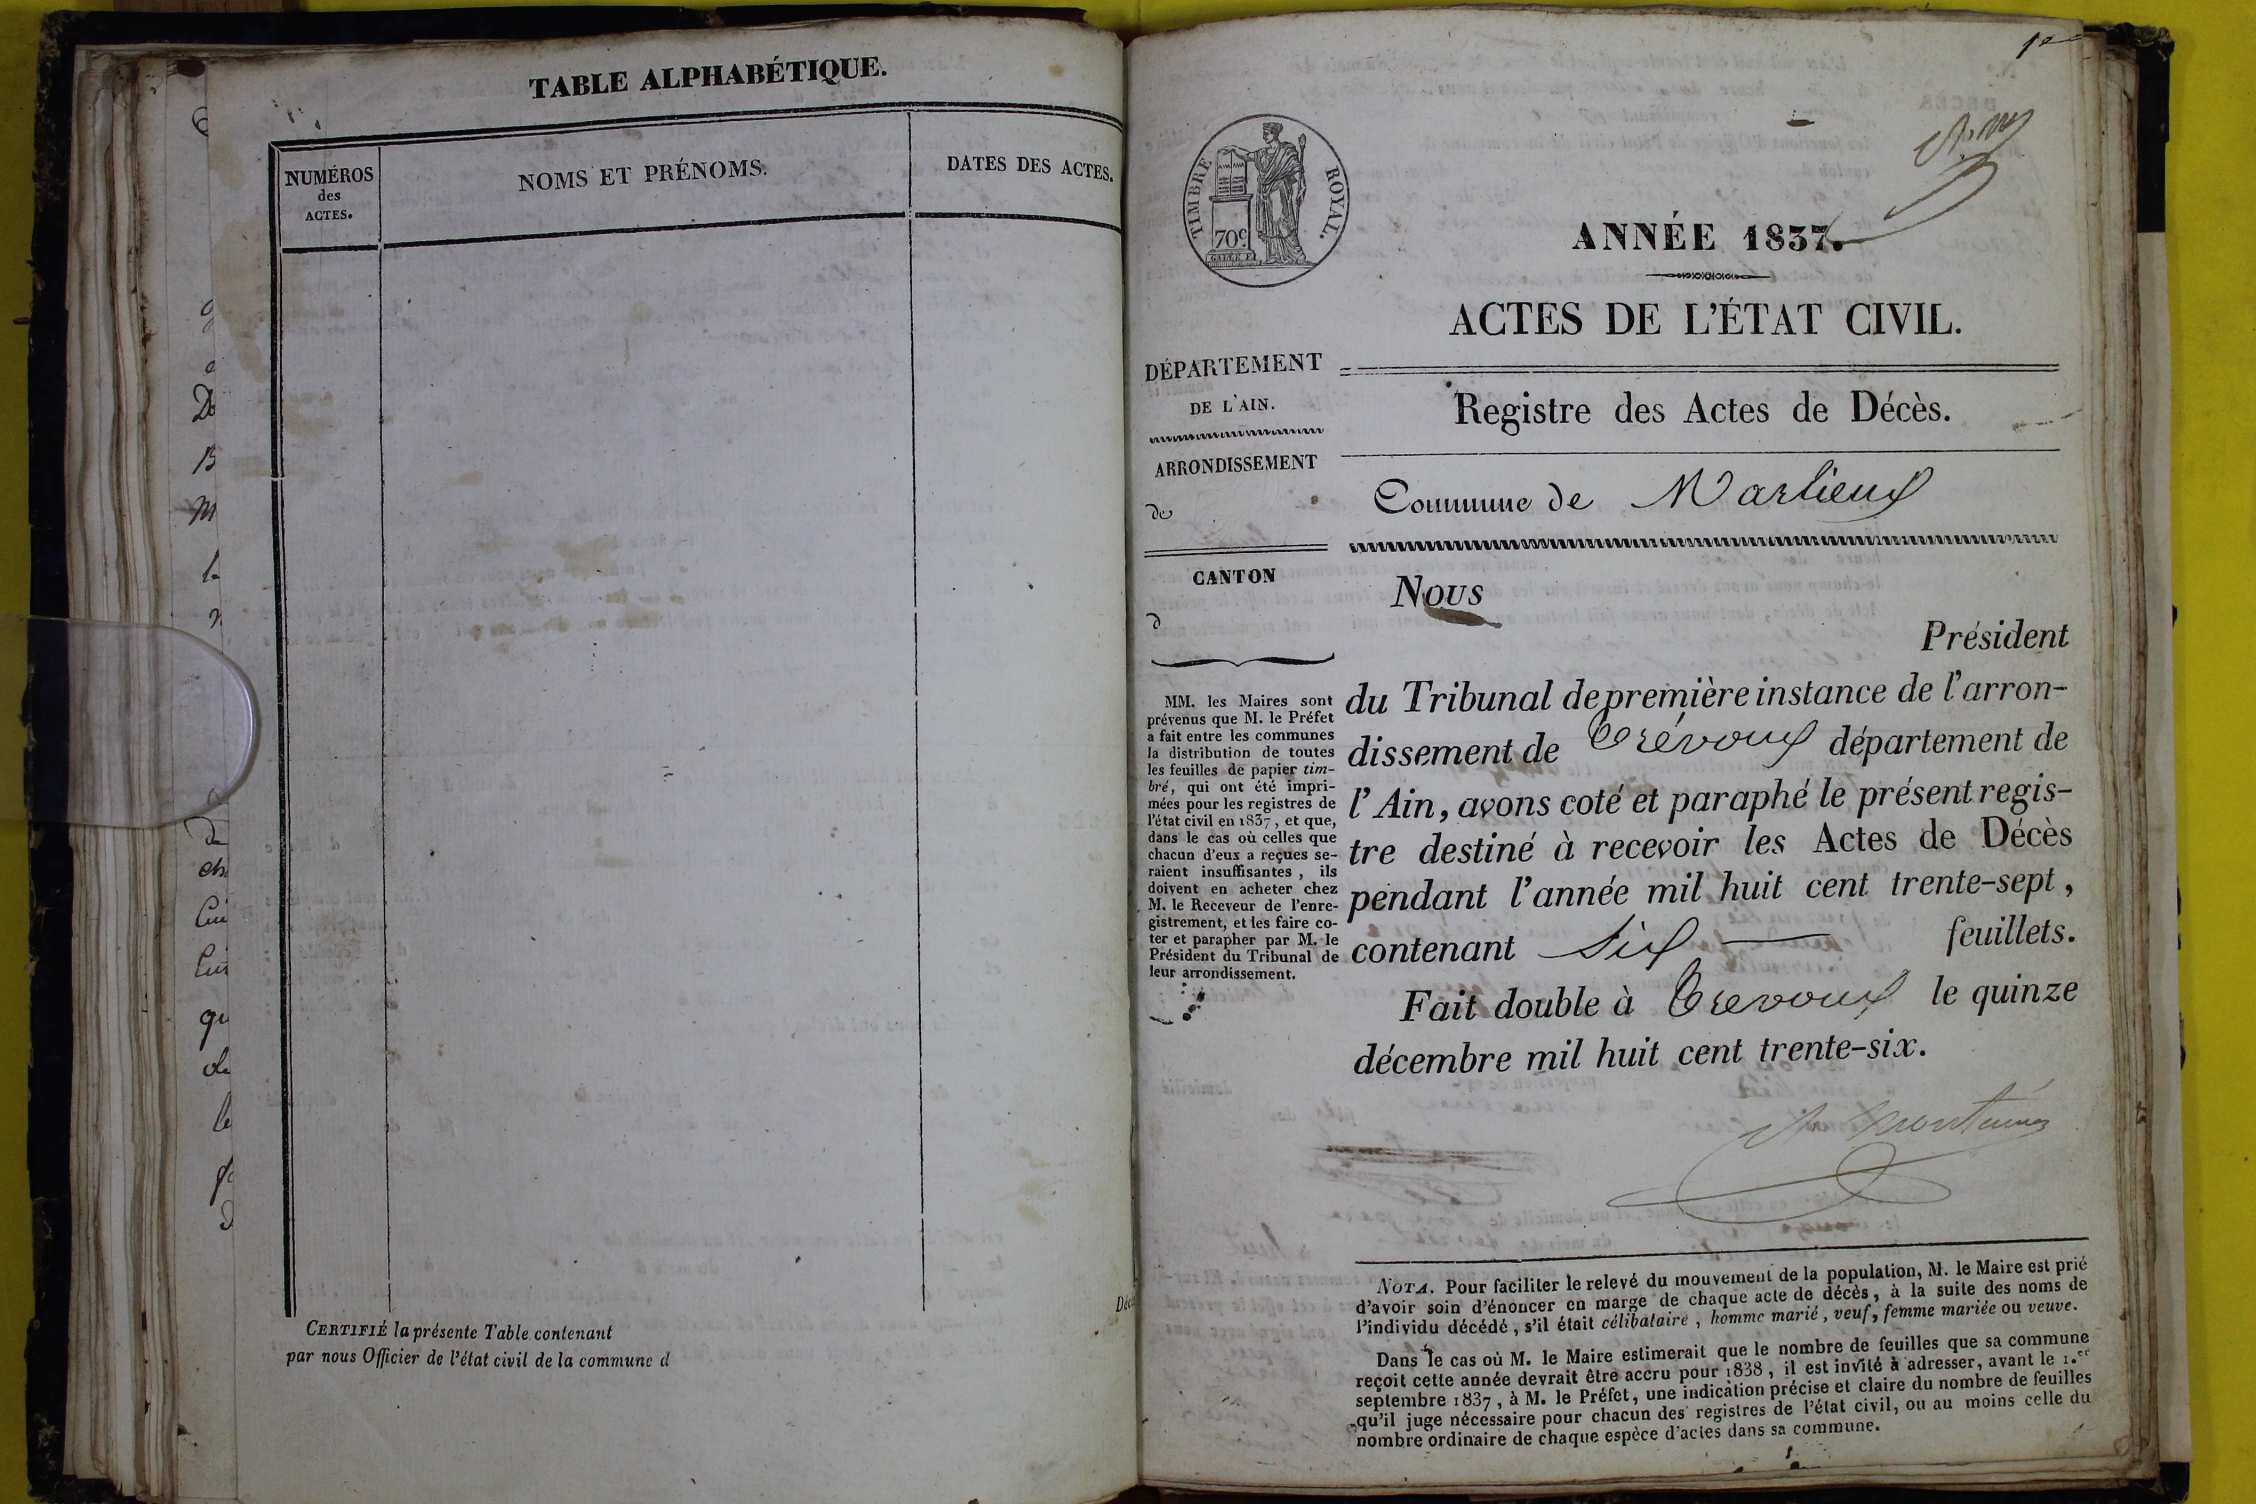 TABLE ALPHABÉTIQUE.
NUMÉROS
des
ACTES.
NOMS ET PRÉNOMS.
DATES DES ACTES.
CERTIFIÉ la présente Table contenant
par nous Officier de l'état civil de la commune d
1er
TIMBRE ROYAL.
70c
ANNÉE 1837.
ACTES DE L'ÉTAT CIVIL.
DÉPARTEMENT
DE L'AIN.
ARRONDISSEMENT
de
CANTON
d
MM. les Maires sont
prévenus que M. le Préfet
a fait entre les communes
la distribution de toutes
les feuilles de papier tim-
bré, qui ont été impri-
mées pour les registres de
l'état civil en 1837, et que,
dans le cas où celles que
chacun d'eux a reçues se-
raient insuffisantes, ils
doivent en acheter chez
M. le Receveur de l'enre-
gistrement, et les faire co-
ter et parapher par M. le
Président du Tribunal de
leur arrondissement.
Registre des Actes de Décès.
Commune de Marlieux
Nous
Président
du Tribunal de première instance de l'arron-
dissement de Trévoux département de
l'Ain, avons coté et paraphé le présent regis-
tre destiné à recevoir les Actes de Décès
pendant l'année mil huit cent trente-sept,
contenant Six feuillets.
Fait double à Trevoux le quinze
décembre mil huit cent trente-six.
NOTA. Pour faciliter le relevé du mouvement de la population, M. le Maire est prié
d'avoir soin d'énoncer en marge de chaque acte de décès, à la suite des noms de
l'individu décédé, s'il était célibataire, homme marié, veuf, femme mariée ou veuve.
Dans le cas où M. le Maire estimerait que le nombre de feuilles que sa commune
reçoit cette année devrait être accru pour 1838, il est invité à adresser, avant le 1.er
septembre 1837, à M. le Préfet, une indication précise et claire du nombre de feuilles
qu'il juge nécessaire pour chacun des registres de l'état civil, ou au moins celle du
nombre ordinaire de chaque espèce d'actes dans sa commune.